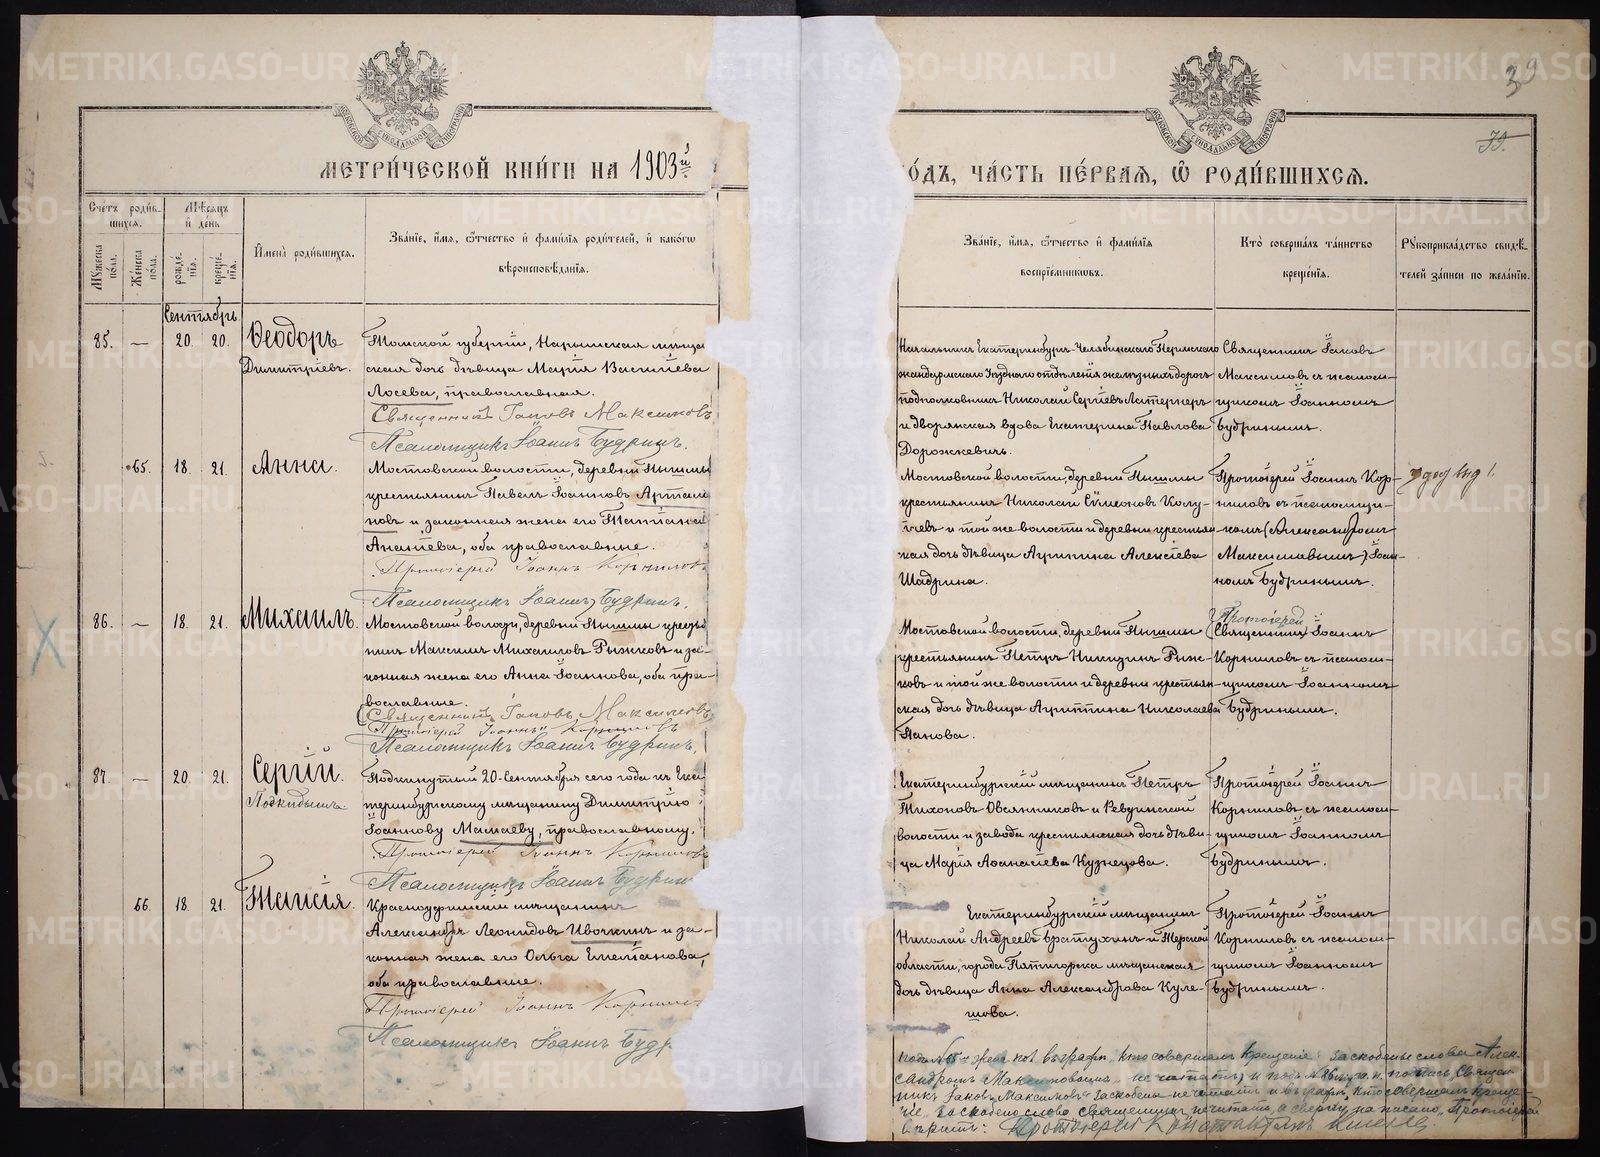 METRIKI.GASO-URAL.RU
39
МОСКОВСКОЙ СѴНОДАЛЬНОЙ ТИПОГРАФІИ
79.
МЕТРИ́ЧЕСКОЙ КНИ́ГИ НА 1903й
ГО́ДЪ, ЧА́СТЬ ПЕ́РВАЯ, Ѡ РОДИ́ВШИХСЯ.
Сче́тъ роди́вшихся.
Мѣ́сяцъ и де́нь.
Му́жеска по́ла.
Же́нска по́ла.
рожде́нія.
креще́нія.
Имена̀ роди́вшихся.
Зва́ніе, и́мя, о́тчество и фами́лія роди́телей, и како́гѡ
вѣроисповѣ́данія.
Зва́ніе, и́мя, о́тчество и фами́лія
воспріе́мникѡвъ.
Кто̀ соверша́лъ та́инство
креще́нія.
Рукоприкла́дство свидѣ́-
телей за́писи по жела́нію.
Сентябрь
85. — 20. 20. Ѳеодоръ
Димитріевъ.
Томской губерніи, Нарымская мѣща
ская дочь дѣвица Марія Василіева
Лосева, православная.
Священникъ Іаковъ Максимовъ
Псаломщикъ Іоаннъ Будринъ.
Начальникъ Екатеринбургъ-Челябинскаго Пермскаго
жандармскаго Уѣзднаго отдѣленія желѣзныхъ дорогъ
подполковникъ Николай Сергіевъ Латернеръ
и дворянская вдова Екатерина Павлова
Дорожкевичъ.
Священникъ Іаковъ
Максимовъ съ псалом-
щикомъ Іоанномъ
Будринымъ.
65. 18. 21. Анна.
Мостовской волости, деревни Пышмы
крестьянинъ Павелъ Іоанновъ Артамо
новъ и законная жена его Татіана
Ананіева, оба православные.
Протоіерей Іоаннъ Корниловъ
Псаломщикъ Іоаннъ Будринъ.
Мостовской волости, деревни Пышмы
крестьянинъ Николай Сѵмеоновъ Калу-
гіевъ и той же волости и деревни крестьян-
ская дочь дѣвица Агрипина Алексіева
Шадрина.
Протоіерей Іоаннъ Кор-
ниловъ съ псаломщи-
комъ (Александромъ
Максимовымъ) Іоан-
номъ Будринымъ.
86. — 18. 21. Михаилъ.
Мостовской волости, деревни Пышмы кресть
нинъ Максимъ Михаиловъ Рыжковъ и за-
конная жена его Анна Іоаннова, оба пра-
вославные.
(Священникъ Іаковъ Максимовъ)
Протоіерей Іоаннъ Корниловъ
Псаломщикъ Іоаннъ Будринъ.
Мостовской волости, деревни Пышмы
крестьянинъ Петръ Никитинъ Рыж-
ковъ и той же волости и деревни крестьян-
ская дочь дѣвица Агриппина Николаева
Панова.
Протоіерей
(Священникъ) Іоаннъ
Корниловъ съ псалом-
щикомъ Іоанномъ
Будринымъ.
87. — 20. 21. Сергій.
Подкидышъ.
Подкинутый 20-Сентября сего года къ Ека
теринбургскому мѣщанину Димитрію
Іоаннову Мамаеву, православному.
Протоіерей Іоаннъ Корниловъ
Псаломщикъ Іоаннъ Будрин
Екатеринбургскій мѣщанинъ Петръ
Тихоновъ Овсянниковъ и Ревдинской
волости и завода крестьянская дочь дѣви-
ца Марія Аѳанасіева Кузнецова.
Протоіерей Іоаннъ
Корниловъ съ псалом-
щикомъ Іоанномъ
Будринымъ.
66. 18. 21. Таисія.
Красноуфимскій мѣщанинъ
Александръ Леонидовъ Ивочкинъ и за-
конная жена его Ольга Емеліанова,
оба православные.
Протоіерей Іоаннъ Корнило
Псаломщикъ Іоаннъ Будр
Екатеринбургскій мѣщанинъ
Николай Андреевъ Братухинъ и Терской
области, города Пятигорска мѣщанская
дочь дѣвица Анна Александрова Куле-
шова.
Протоіерей Іоаннъ
Корниловъ съ псалом-
щикомъ Іоанномъ
Будринымъ.
подъ № 65 жен. пол въ графѣ, кто совершалъ крещеніе: заскобленыя слова Алек-
сандромъ Максимовымъ не читать; и подъ № 86 подпись, Священ-
никъ Іаковъ Максимовъ заскоблены не читать и въ графѣ, кто совершалъ креще-
ніе заскоблено слово священникъ не читать, а сверху написано, Протоіерей
вѣрить: Протоіерей Константинъ